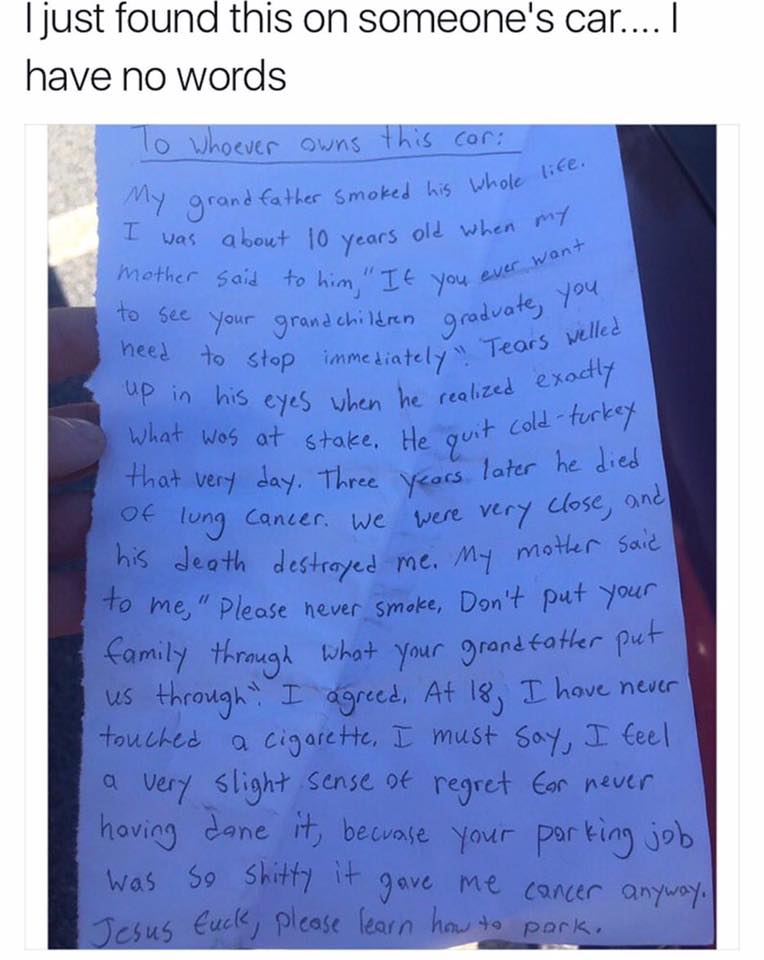 I just found this on someone's car.... I
have no words
To whoever owns this car:
My grandfather smoked his whole life.
I was about 10 years old when my
mother said to him, "If you ever want
to see your grandchildren graduate, you
need to stop immediately". Tears welled
up in his eyes when he realized exactly
what was at stake. He quit cold-turkey
that very day. Three years later he died
of lung cancer. We were very close, and
his death destroyed me. My mother said
to me, "Please never smoke. Don't put your
family through what your grandfather put
us through". I agreed. At 18, I have never
touched a cigarette. I must say, I feel
a very slight sense of regret for never
having done it, becuase your parking job
was so shitty it gave me cancer anyway.
Jesus fuck, please learn how to park.